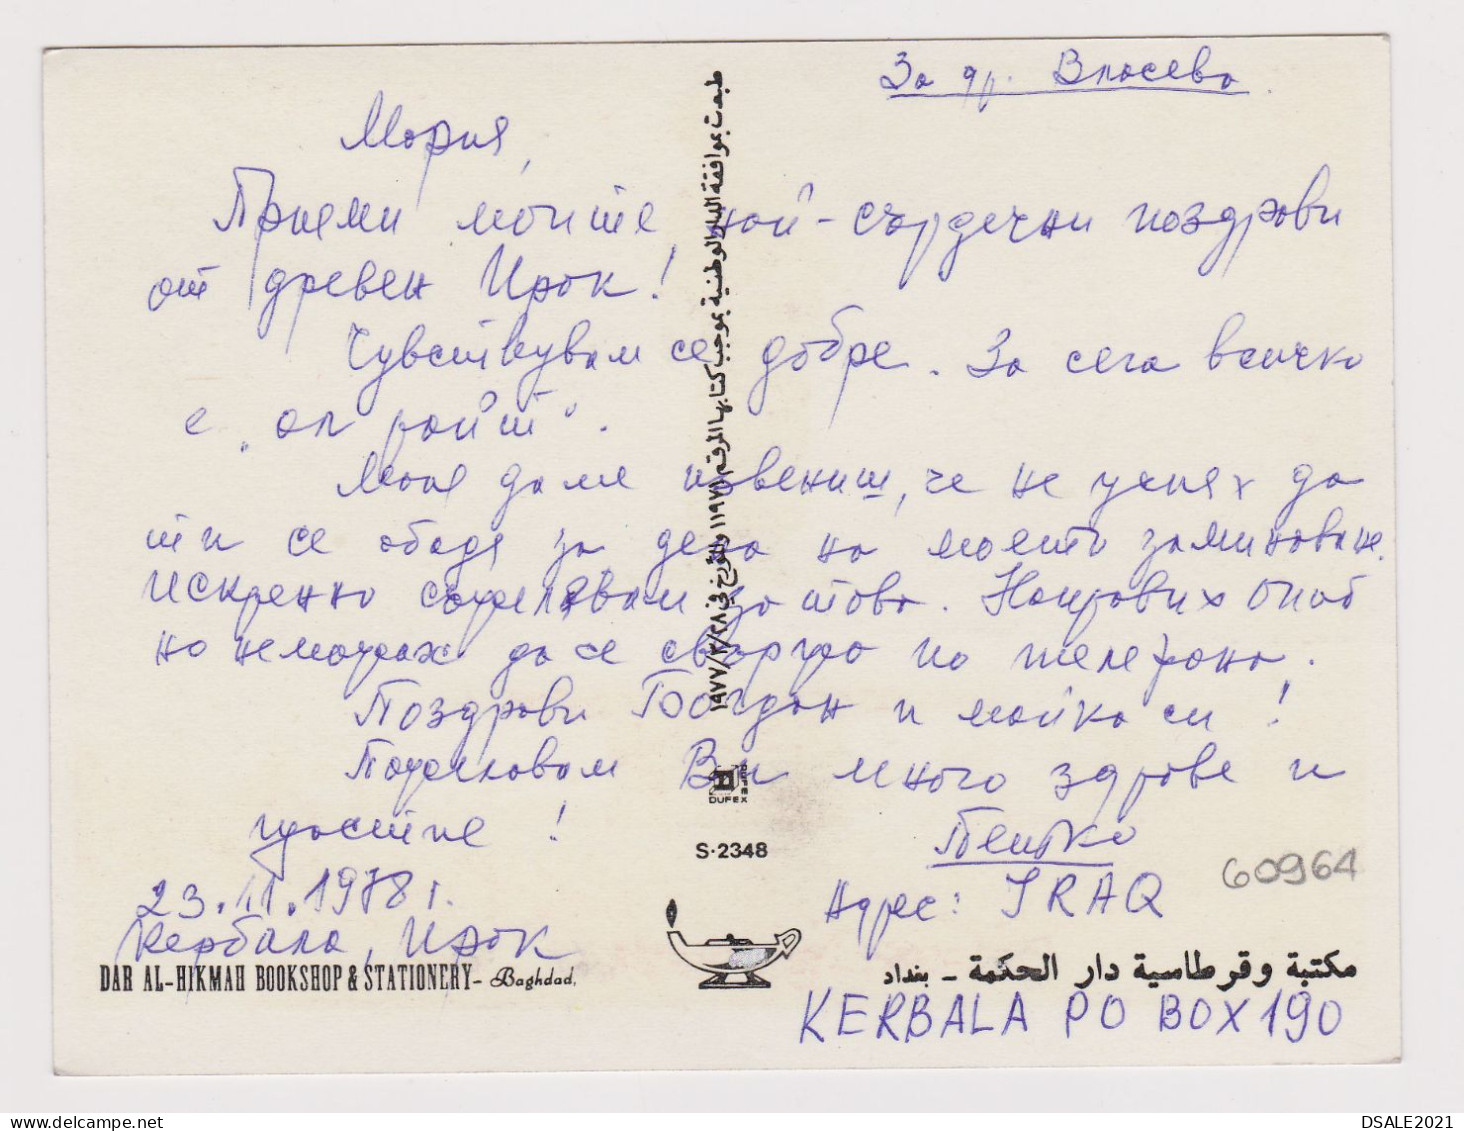 За др. Власева
Мария,
Приеми моите най-сърдечни поздрави
от древен Ирак!
Чувствувам се добре. За сега всичко
е „ол райт“.
Моля да ме извениш, че не успях да
ти се обадя за деня на моето заминаване.
Искренно съжелявам за това. Направих опит
но неможах да се свържа по телефона.
Поздрави Богдан и майка си!
Пожелавам Ви много здраве и
щастие!
Петко
23.11.1978 г.
Кербала, Ирак
Адрес: IRAQ
KERBALA PO BOX 190
60964
طبعت بموافقة الدار الوطنية بموجب كتابها المرقم ١١٩٧١ والمؤرخ في ١٩٧٧/٣/٢٨
DUFEX
DUFEX
S·2348
DAR AL-HIKMAH BOOKSHOP & STATIONERY - Baghdad.
مكتبة وقرطاسية دار الحكمة - بغداد
DSALE2021